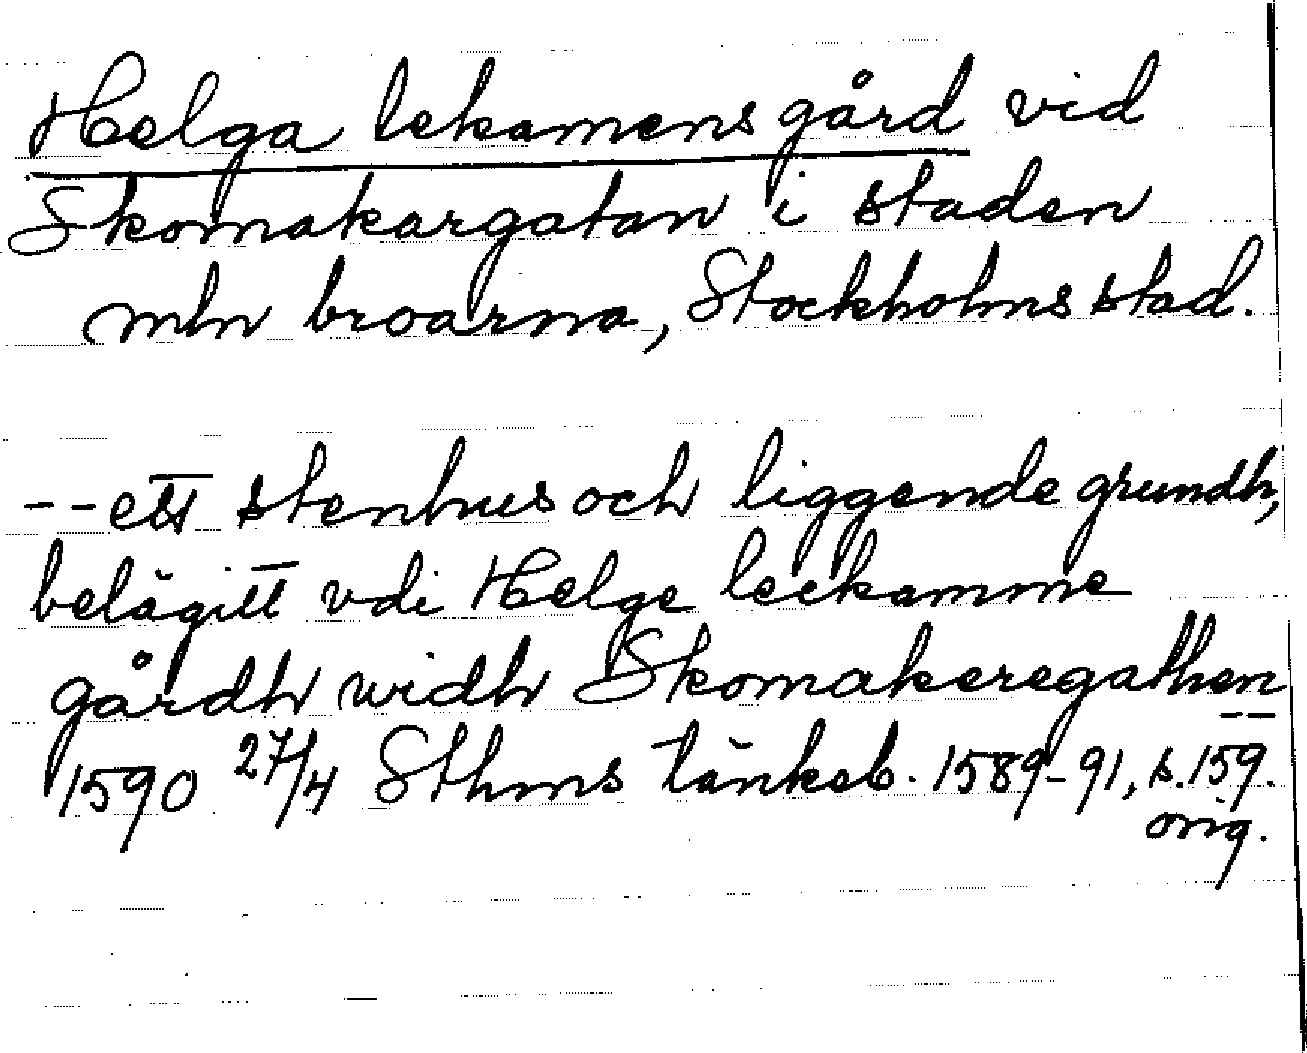 Helga lekamens gård vid
Skomakargatan i staden
mln broarna, Stockholms stad.
-- ett stenhus och liggende grundh,
belägitt vdi Helge leckamme
gårdh widh Skomakeregathen --
1590 27/4 Sthms tänkeb. 1589-91, s. 159.
orig.